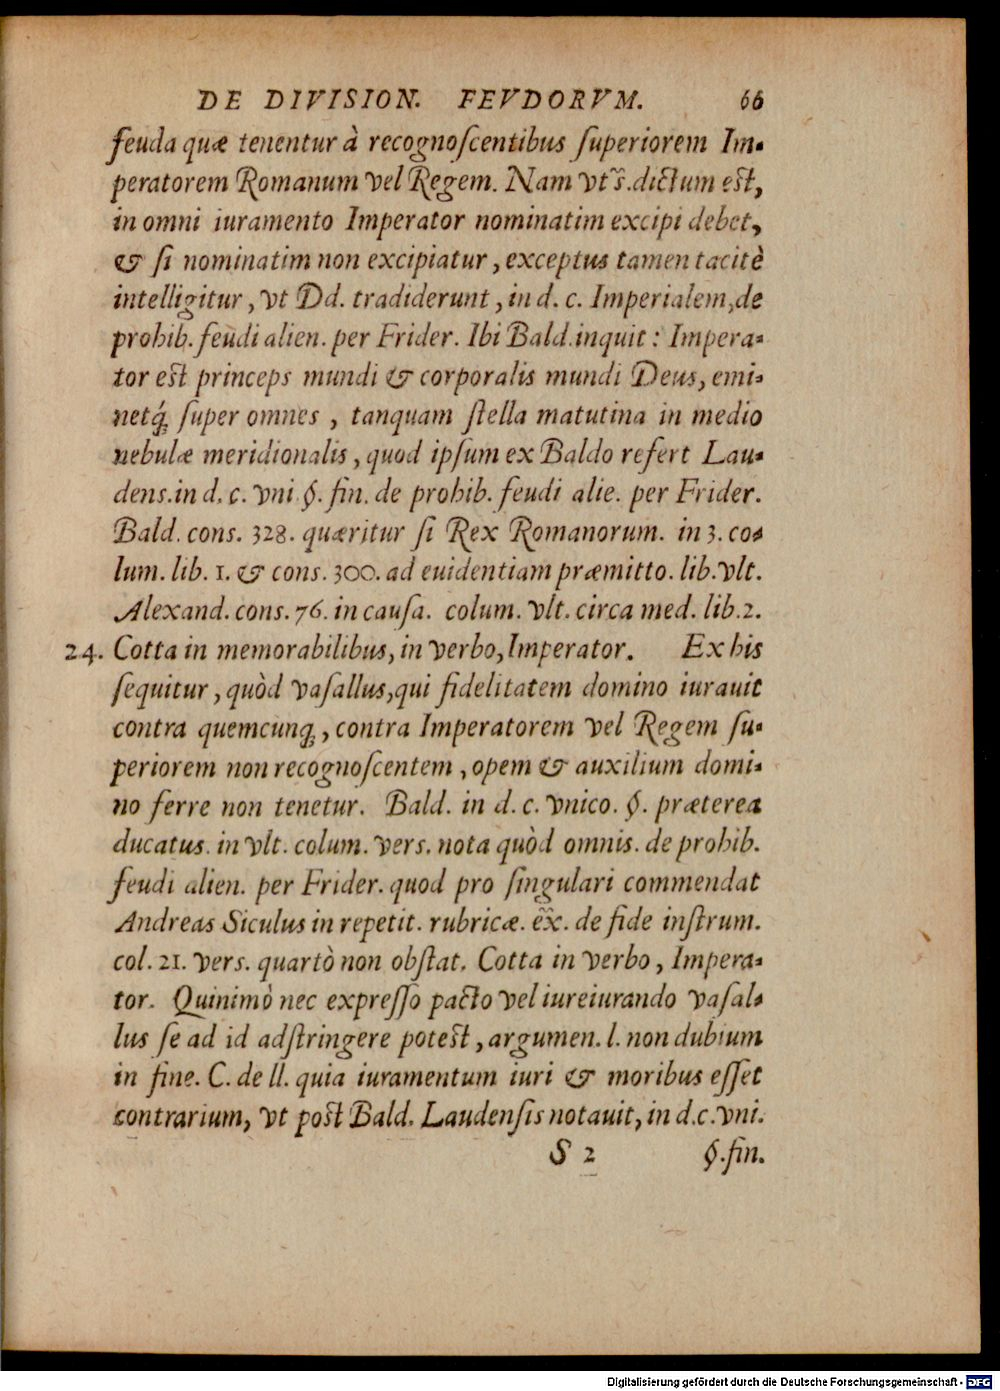 DE DIVISION. FEVDORVM. 66
feuda quæ tenentur à recognoſcentibus ſuperiorem Im-
peratorem Romanum vel Regem. Nam vt s̃. dictum eſt,
in omni iuramento Imperator nominatim excipi debet,
& ſi nominatim non excipiatur, exceptus tamen tacitè
intelligitur, vt Dd. tradiderunt, in d. c. Imperialem, de
prohib. feudi alien. per Frider. Ibi Bald. inquit: Impera-
tor eſt princeps mundi & corporalis mundi Deus, emi-
netq́; ſuper omnes, tanquam ſtella matutina in medio
nebulæ meridionalis, quod ipſum ex Baldo refert Lau-
dens. in d. c. vni §. fin. de prohib. feudi alie. per Frider.
Bald. cons. 328. quæritur ſi Rex Romanorum. in 3. co-
lum. lib. 1. & cons. 300. ad euidentiam præmitto. lib. vlt.
Alexand. cons. 76. in cauſa. colum. vlt. circa med. lib. 2.
24. Cotta in memorabilibus, in verbo, Imperator. Ex his
ſequitur, quòd vaſallus, qui fidelitatem domino iurauit
contra quemcunq;, contra Imperatorem vel Regem ſu-
periorem non recognoſcentem, opem & auxilium domi-
no ferre non tenetur. Bald. in d. c. vnico. §. præterea
ducatus. in vlt. colum. vers. nota quòd omnis. de prohib.
feudi alien. per Frider. quod pro ſingulari commendat
Andreas Siculus in repetit. rubricæ. ẽx̃. de fide inſtrum.
col. 21. vers. quartò non obſtat. Cotta in verbo, Impera-
tor. Quinimò nec expreſſo pacto vel iureiurando vaſal-
lus ſe ad id adſtringere poteſt, argumen. l. non dubium
in fine. C. de ll. quia iuramentum iuri & moribus eſſet
contrarium, vt poſt Bald. Laudenſis notauit, in d. c. vni.
S 2 §. fin.
Digitalisierung gefördert durch die Deutsche Forschungsgemeinschaft - DFG